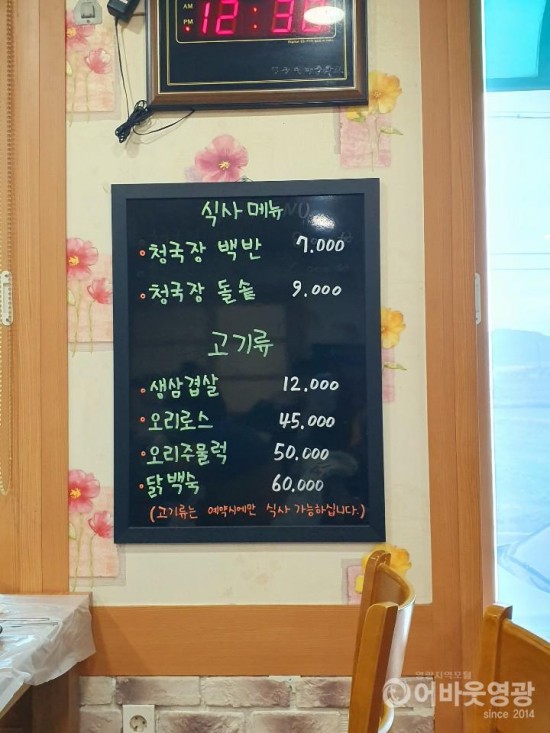 AM
PM
12:30
식사 메뉴
청국장 백반 7.000
청국장 돌솥 9.000
고기류
생삼겹살 12.000
오리로스 45.000
오리주물럭 50.000
닭백숙 60.000
(고기류는 예약시에만 식사 가능하십니다.)
어바웃영광
since 2014